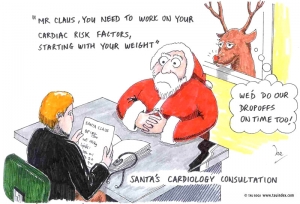 "MR. CLAUS, YOU NEED TO WORK ON YOUR
CARDIAC RISK FACTORS,
STARTING WITH YOUR WEIGHT"
WE'D DO OUR
DROPOFFS
ON TIME TOO!
SANTA CLAUS
SANTA'S CARDIOLOGY CONSULTATION